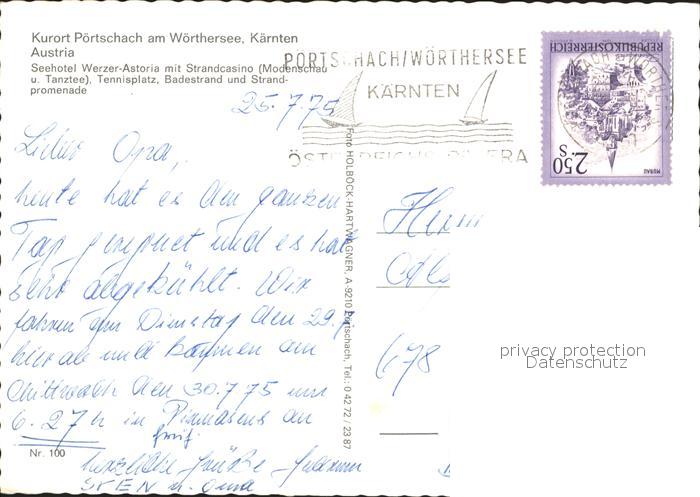 Kurort Pörtschach am Wörthersee, Kärnten
Austria
Seehotel Werzer-Astoria mit Strandcasino (Modenschau
u. Tanztee), Tennisplatz, Badestrand und Strand-
promenade
PÖRTSCHACH/WÖRTHERSEE
KÄRNTEN
ÖSTERREICHS RIVIERA
REPUBLIK ÖSTERREICH
2.50 S
MURAU
25.7.75
Lieber Opa,
heute hat es den ganzen
Tag geregnet und es hat
sehr abgekühlt. Wir
fahren am Dienstag den 29.7
hier ab und kommen am
Mittwoch den 30.7 75 um
6.27 h in Pirmasens an
früh.
Herzliche Grüße
SVEN u. Oma
Nr. 100
Foto HOLBÖCK-HARTWAGNER, A-9210 Pörtschach, Tel.: 0 42 72 / 23 87
Herrn
678
privacy protection
Datenschutz